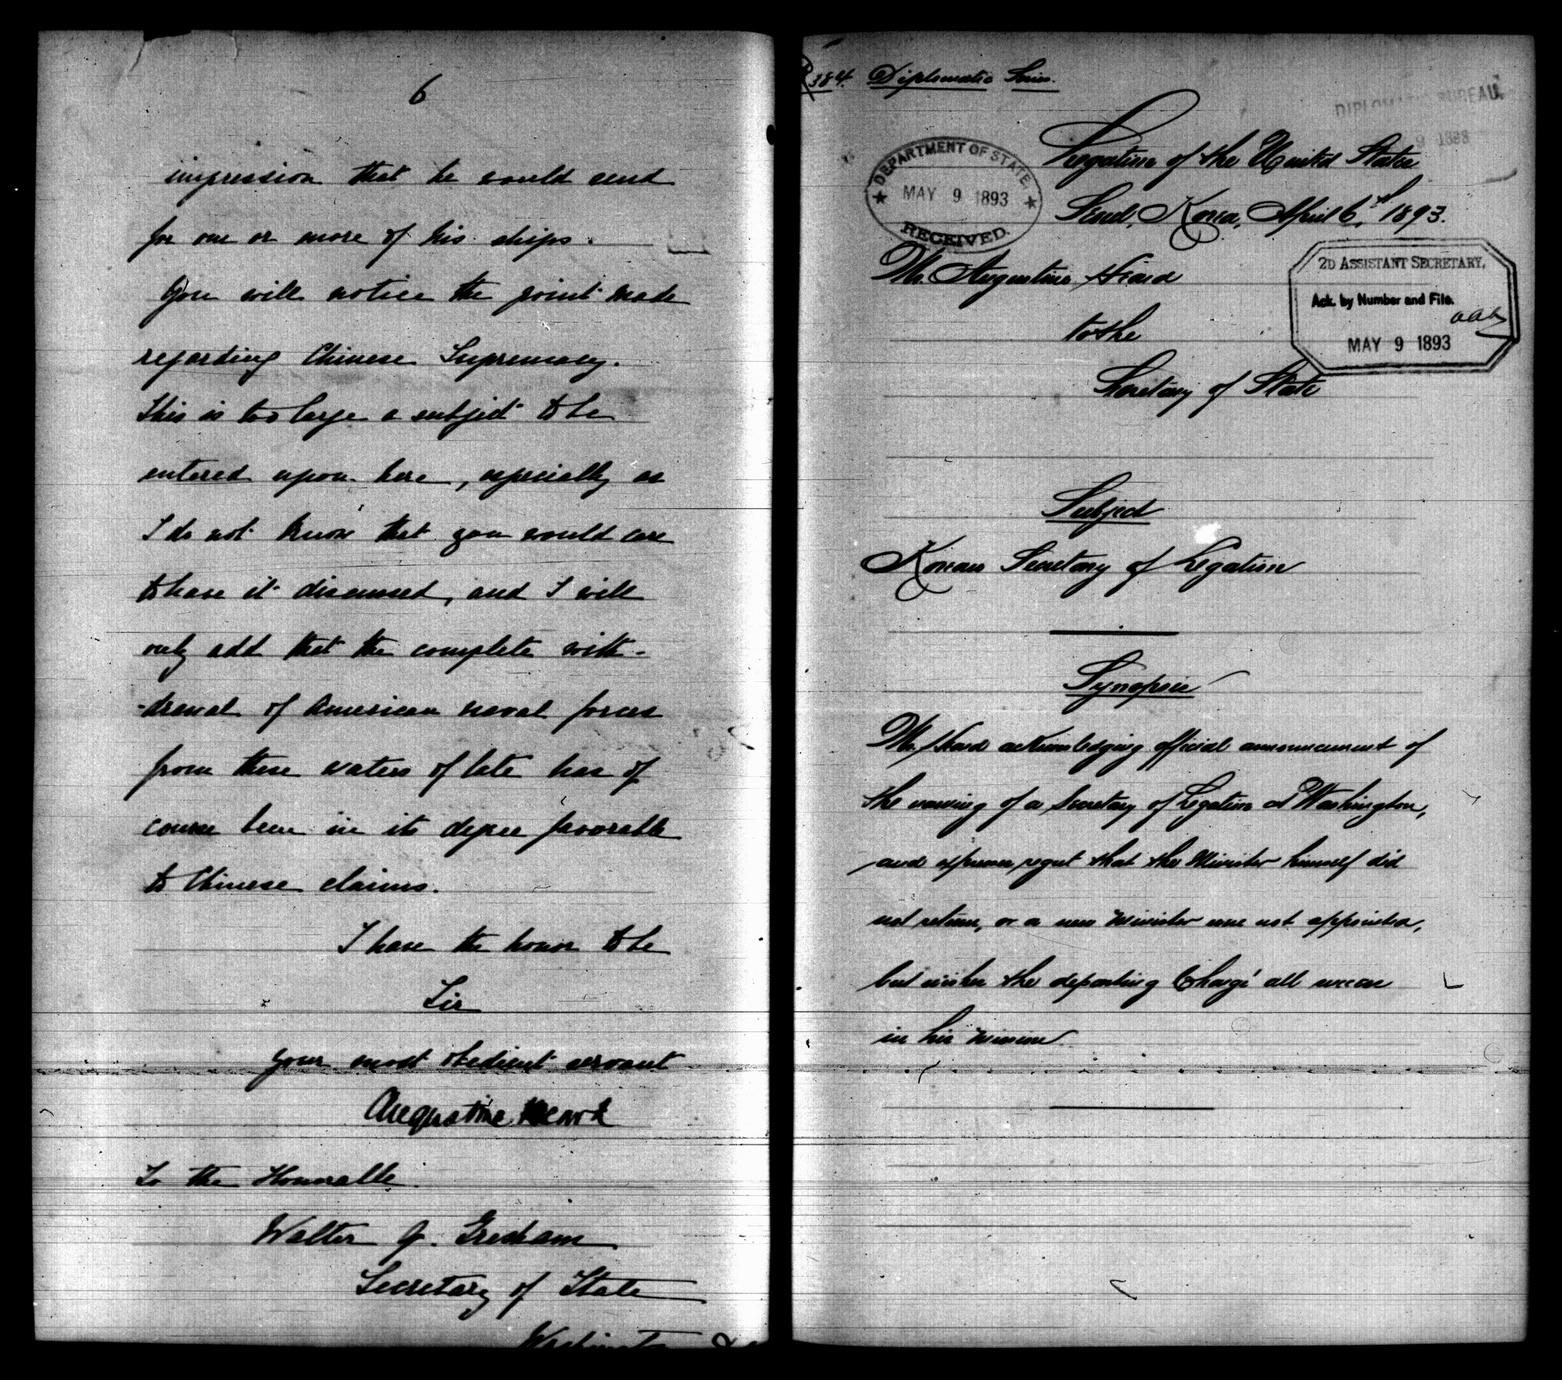 6
impression that he would send
for one or more of his ships.
You will notice the point made
regarding Chinese Supremacy.
This is too large a subject to be
entered upon here, especially as
I do not know that you would care
to have it discussed, and I will
only add that the complete with-
-drawal of American naval forces
from these waters of late has of
course been in its degree favorable
to Chinese claims.
I have the honor to be
Sir
your most obedient servant
Augustine Heard
To the Honorable
Walter Q. Gresham
Secretary of State
Washington
384. Diplomatic Series.
DIPLOMATIC BUREAU.
9 1893
Legation of the United States
Seoul, Korea, April 6th 1893.
DEPARTMENT OF STATE.
MAY 9 1893
RECEIVED.
Mr. Augustine Heard
to the
Secretary of State
2D ASSISTANT SECRETARY.
Ack. by Number and File.
MAY 9 1893
Subject
Korean Secretary of Legation
Synopsis
Mr. Heard acknowledging official announcement of
the naming of a Secretary of Legation at Washington,
and expresses regret that the Minister himself did
not return, or a new Minister was not appointed,
but wishes the departing Chargé all success
in his mission